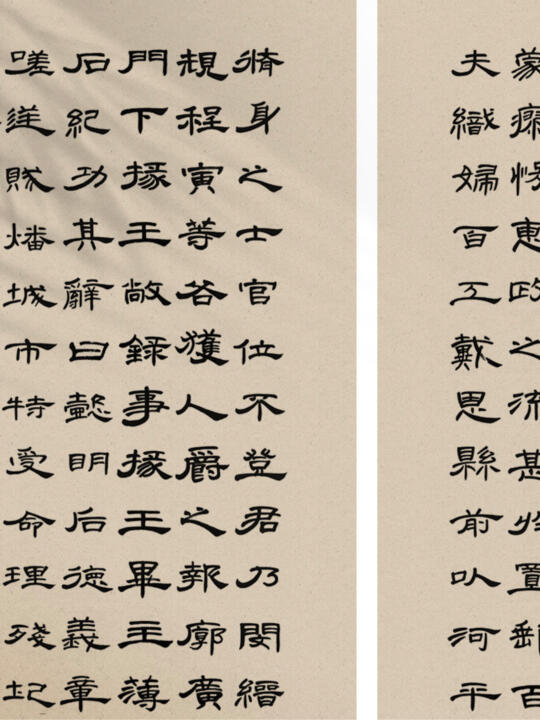 蒙瘳悛惠政之流甚於置郵百
夫織婦百工戴恩縣前以河平
脩身之士官位不登君乃閔縉
規程寅等各獲人爵之報廓廣
門下掾王敞録事掾王畢主薄
后紀功其辭曰懿明后德義章
嗟逆賊燔城市特受命理殘圮